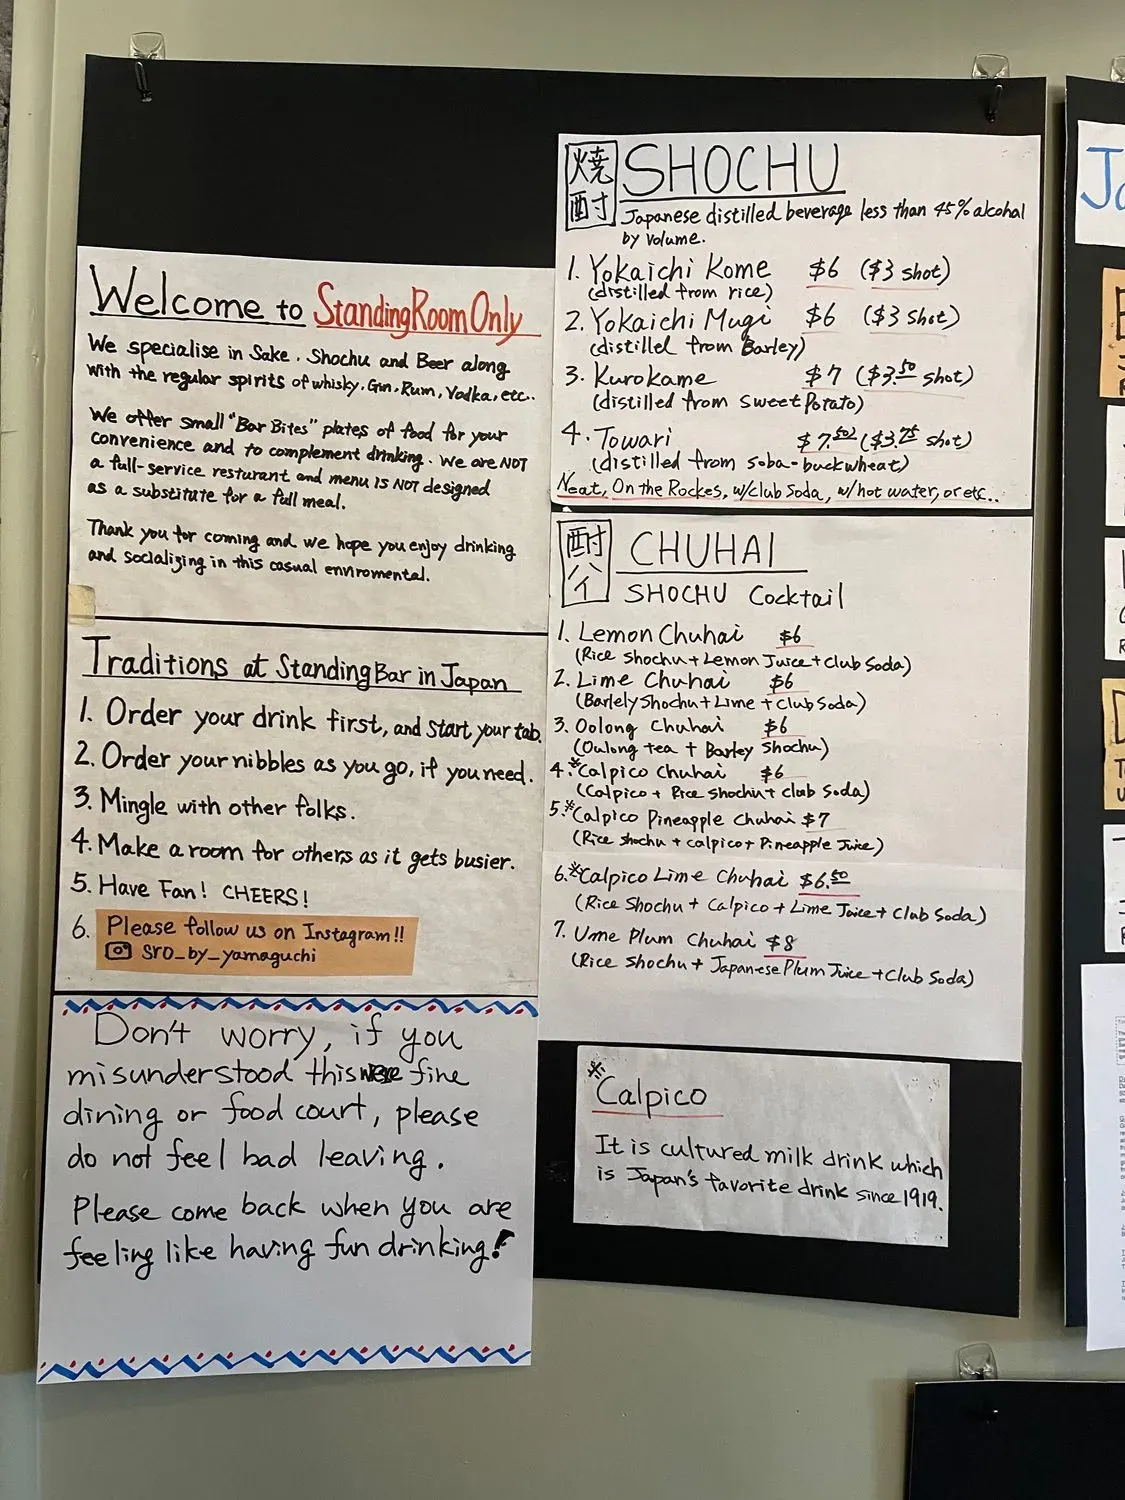 Welcome to StandingRoomOnly
We specialise in Sake, Shochu and Beer along
with the regular spirits of whisky, Gin, Rum, Vodka, etc..
We offer small "Bar Bites" plates of food for your
convenience and to complement drinking. We are NOT
a full-service resturant and menu is NOT designed
as a substitute for a full meal.
Thank you for coming and we hope you enjoy drinking
and socializing in this casual enviromental.
Traditions at Standing Bar in Japan
1. Order your drink first, and start your tab.
2. Order your nibbles as you go, if you need.
3. Mingle with other folks.
4. Make a room for others as it gets busier.
5. Have Fan! CHEERS!
6. Please follow us on Instagram!!
sro_by_yamaguchi
Don't worry, if you
misunderstood this were fine
dining or food court, please
do not feel bad leaving.
Please come back when you are
feeling like having fun drinking!
焼酎 SHOCHU
Japanese distilled beverage less than 45% alcohal
by volume.
1. Yokaichi Kome $6 ($3 shot)
(distilled from rice)
2. Yokaichi Mugi $6 ($3 shot)
(distilled from Barley)
3. Kurokame $7 ($3.50 shot)
(distilled from sweet Potato)
4. Towari $7.50 ($3.75 shot)
(distilled from soba-buckwheat)
Neat, On the Rockes, w/club Soda, w/hot water, or etc..
酎ハイ CHUHAI
SHOCHU Cocktail
1. Lemon Chuhai $6
(Rice Shochu + Lemon Juice + club Soda)
2. Lime Chuhai $6
(Barlely Shochu + Lime + club Soda)
3. Oolong Chuhai $6
(Oulong tea + Barley Shochu)
4.※Calpico Chuhai $6
(Calpico + Rice Shochu + club Soda)
5.※Calpico Pineapple Chuhai $7
(Rice shochu + calpico + Pineapple Juice)
6.※Calpico Lime Chuhai $6.50
(Rice Shochu + Calpico + Lime Juice + Club Soda)
7. Ume Plum Chuhai $8
(Rice Shochu + Japanese Plum Juice + Club Soda)
※Calpico
It is cultured milk drink which
is Japan's favorite drink since 1919.